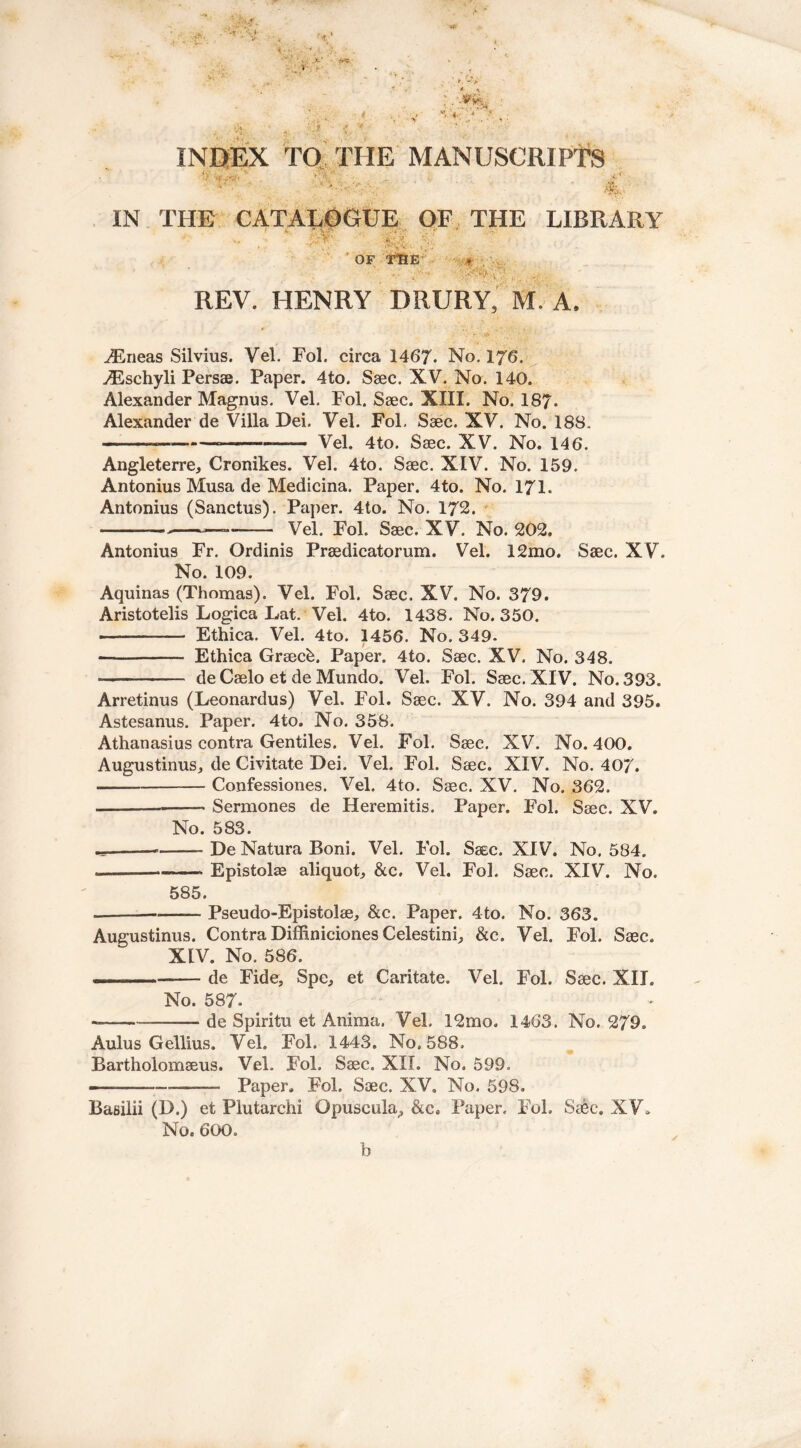 INDEX TO THE MANUSCRIPTS
IN THE CATALOGUE OF THE LIBRARY
OF THE
REV. HENRY DRURY, M. A.
Æneas Silvius. Vel. Fol. circa 1467. No. 176.
Æschyli Persæ. Paper. 4to. Sæc. XV. No. 140.
Alexander Magnus. Vel. Fol. Sæc. XIII. No. 187.
Alexander de Villa Dei. Vel. Fol. Sæc. XV. No. 188.
——— Vel. 4to. Sæc. XV. No. 146.
Angleterre, Cronikes. Vel. 4to. Sæc. XIV. No. 159.
Antonius Musa de Medicina. Paper. 4to. No. 171.
Antonius (Sanctus). Paper. 4to. No. 172.
——— Vel. Fol. Sæc. XV. No. 202.
Antonius Fr. Ordinis Prædicatorum. Vel. 12mo. Sæc. XV.
No. 109.
Aquinas (Thomas). Vel. Fol. Sæc. XV. No. 379.
Aristotelis Logica Lat. Vel. 4to. 1438. No. 350.
——— Ethica. Vel. 4to. 1456. No. 349.
——— Ethica Græcè. Paper. 4to. Sæc. XV. No. 348.
——— de Cælo et de Mundo. Vel. Fol. Sæc. XIV. No. 393.
Arretinus (Leonardus) Vel. Fol. Sæc. XV. No. 394 and 395.
Astesanus. Paper. 4to. No. 358.
Athanasius contra Gentiles. Vel. Fol. Sæc. XV. No. 400.
Augustinus, de Civitate Dei. Vel. Fol. Sæc. XIV. No. 407.
——— Confessiones. Vel. 4to. Sæc. XV. No. 362.
——— Sermones de Heremitis. Paper. Fol. Sæc. XV.
No. 583.
——— De Natura Boni. Vel. Fol. Sæc. XIV. No. 584.
——— Epistolæ aliquot, &c. Vel. Fol. Sæc. XIV. No.
585.
——— Pseudo-Epistolæ, &c. Paper. 4to. No. 363.
Augustinus. Contra Diffiniciones Celestini, &c. Vel. Fol. Sæc.
XIV. No. 586.
——— de Fide, Spe, et Caritate. Vel. Fol. Sæc. XII.
No. 587.
——— de Spiritu et Anima. Vel. 12mo. 1463. No. 279.
Aulus Gellius. Vel. Fol. 1443. No. 588.
Bartholomæus. Vel. Fol. Sæc. XII. No. 599.
——— Paper. Fol. Sæc. XV. No. 598.
Basilii (D.) et Plutarchi Opuscula, &c. Paper. Fol. Sæc. XV.
No. 600.
b